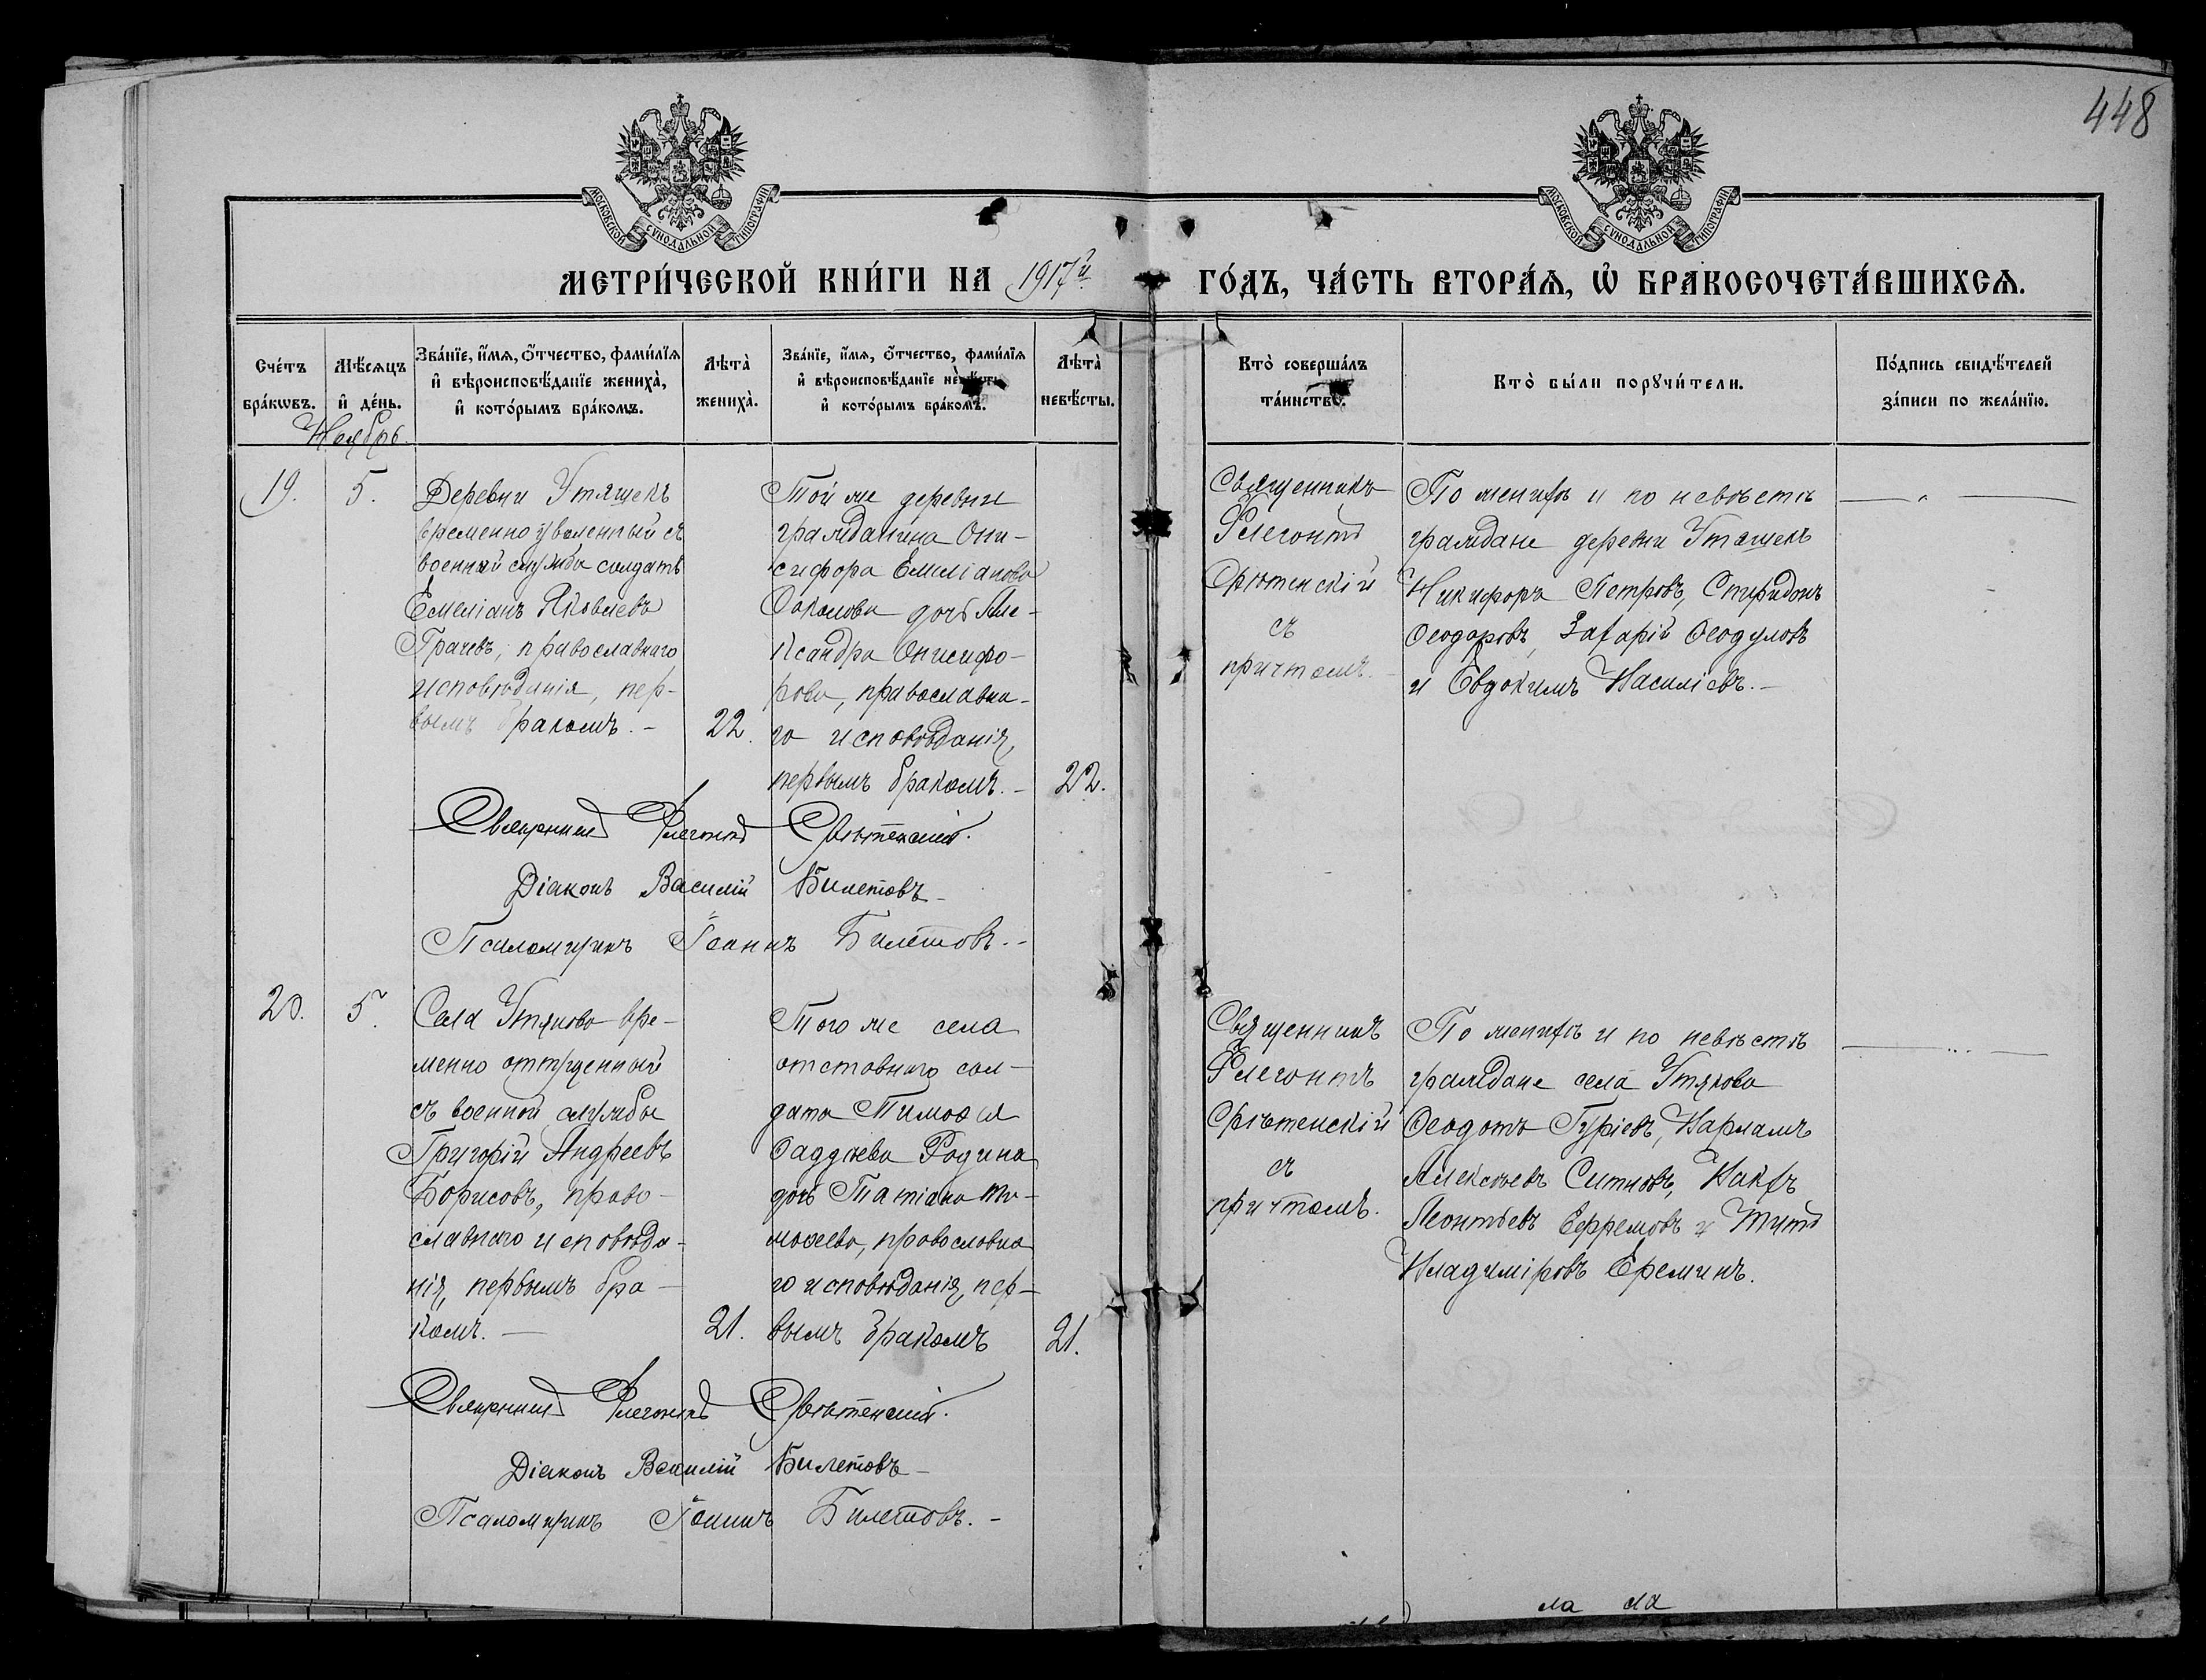 448
МОСКОВСКОЙ СѴНОДАЛЬНОЙ ТИПОГРАФІИ
МОСКОВСКОЙ СѴНОДАЛЬНОЙ ТИПОГРАФІИ
МЕТРИ́ЧЕСКОЙ КНИ́ГИ НА 1917й ГО́ДЪ, ЧА́СТЬ ВТОРА́Ѧ, Ѽ БРАКОСОЧЕТА́ВШИХСѦ.
Сче́тъ
бра́кѡвъ.
Мѣ́сѧцъ
и҆ де́нь.
Зва́нїе, и҆́мѧ, ѻ҆́тчество, фами́лїѧ
и҆ вѣроисповѣ́данїе жениха̀,
и҆ кото́рымъ бра́комъ.
Лѣта̀
жениха̀.
Зва́нїе, и҆́мѧ, ѻ҆́тчество, фами́лїѧ
и҆ вѣроисповѣ́данїе невѣ́сты
и҆ кото́рымъ бра́комъ.
Лѣта̀
невѣ́сты.
Кто̀ соверша́лъ
та́инство.
Кто̀ бы́ли порꙋчи́тели.
По́дпись свидѣ́телей
за́писи по жела́нїю.
Ноябрь.
19.
5.
Деревни Утяшекъ
временно уволенный съ
военной службы солдатъ
Емеліанъ Яковлевъ
Грачевъ, православнаго
исповѣданія, пер-
вымъ бракомъ. -
22.
Той же деревни
гражданина Они-
сифора Емеліанова
Соколова дочь Але-
ксандра Онисифо-
рова, православна-
го исповѣданія,
первымъ бракомъ. -
22.
Священникъ
Флегонтъ
Срѣтенскій
съ
причтомъ.
По женихѣ и по невѣстѣ
граждане деревни Утяшекъ
Никифоръ Петровъ, Спиридонъ
Ѳеодоровъ, Захарій Ѳеодуловъ
и Евдокимъ Василіевъ. -
Священникъ Флегонтъ Срѣтенскій.
Діаконъ Василій Билетовъ -
Псаломщикъ Іоаннъ Билетовъ. -
20.
5.
Села Утяково вре-
менно отпущенный
съ военной службы
Григорій Андреевъ
Борисовъ, право-
славнаго исповѣда-
нія, первымъ бра-
комъ. -
21.
Того же села
отставного сол-
дата Тимоѳея
Ѳаддѣева Родина
дочь Татіана Ти-
моѳеева, православна
го исповѣданія, пер-
вымъ бракомъ
21.
Священникъ
Флегонтъ
Срѣтенскій
съ
причтомъ.
По женихѣ и по невѣстѣ
граждане села Утяково
Ѳеодотъ Гуріевъ, Варламъ
Алексѣевъ Ситновъ, Вакхъ
Леонтьевъ Ефремовъ и Титъ
Владиміровъ Ереминъ.
Священникъ Флегонтъ Срѣтенскій.
Діаконъ Василій Билетовъ -
Псаломщикъ Іоаннъ Билетовъ. -
ла ла